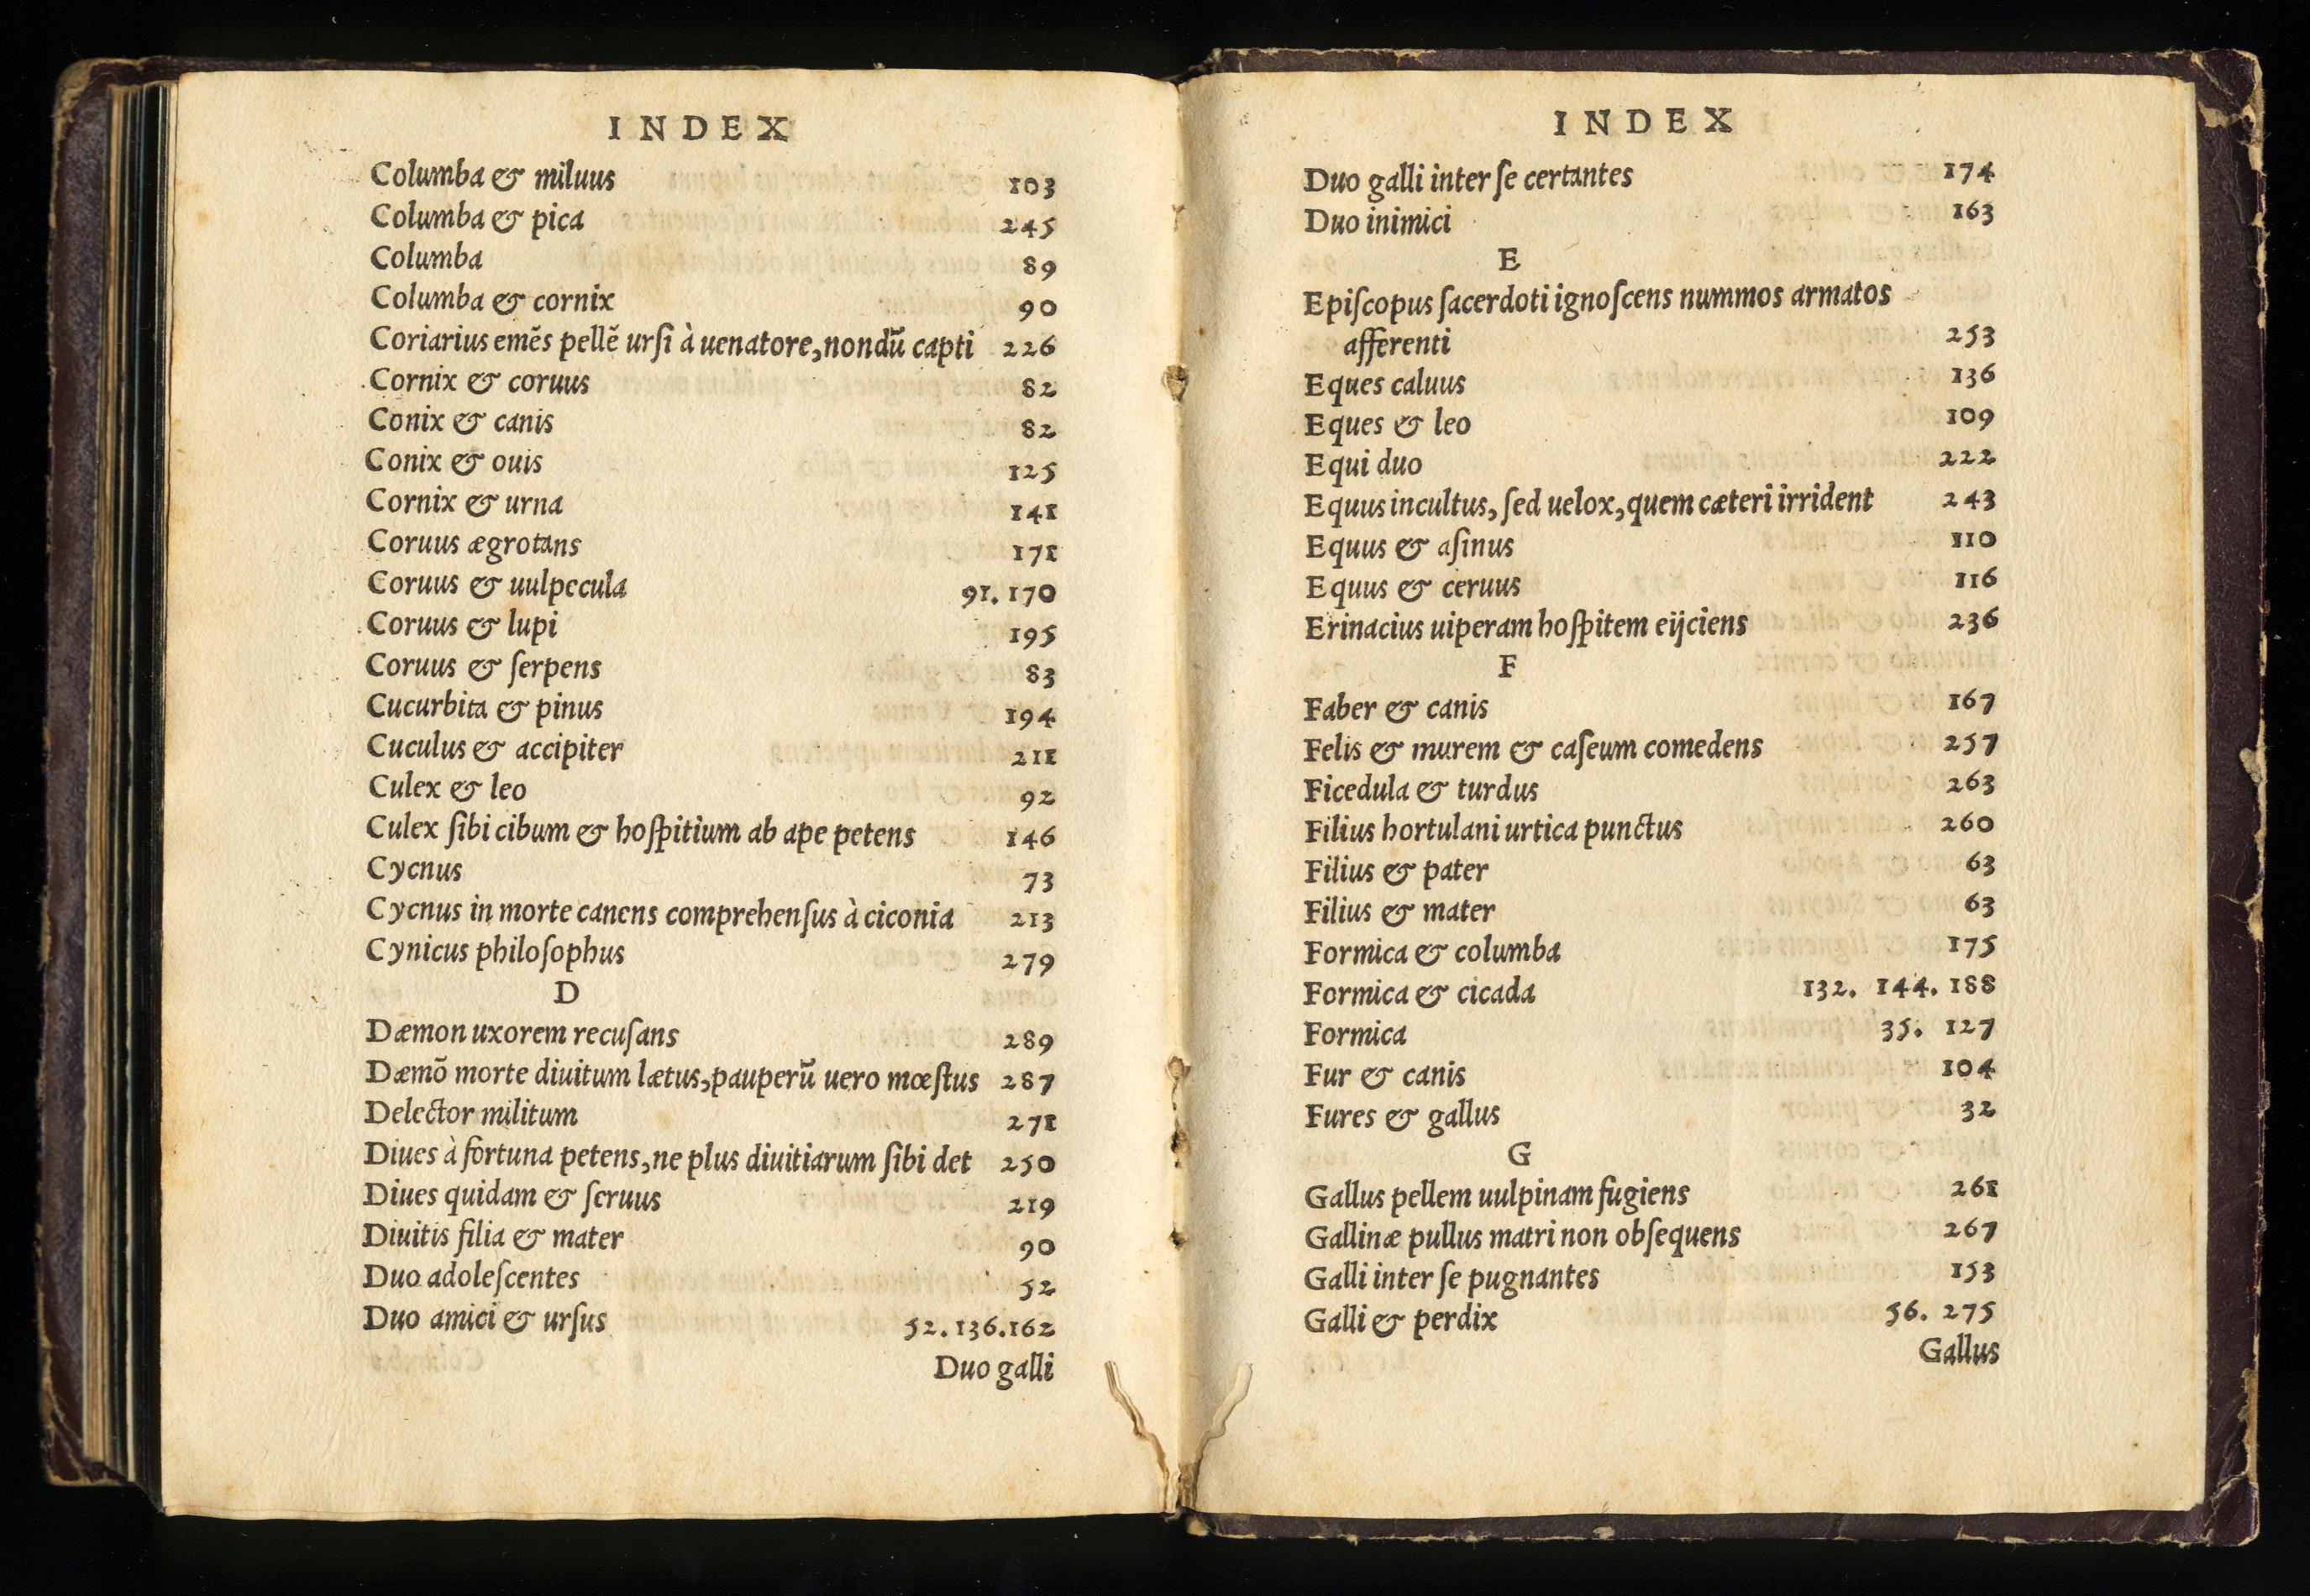 INDEX
Columba & miluus 103
Columba & pica 245
Columba 89
Columba & cornix 90
Coriarius emẽs pellẽ urſi à uenatore, nondũ capti 226
Cornix & coruus 82
Conix & canis 82
Conix & ouis 125
Cornix & urna 141
Coruus ægrotans 171
Coruus & uulpecula 91. 170
Coruus & lupi 195
Coruus & ſerpens 83
Cucurbita & pinus 194
Cuculus & accipiter 211
Culex & leo 92
Culex ſibi cibum & hoſpitium ab ape petens 146
Cycnus 73
Cycnus in morte canens comprehenſus à ciconia 213
Cynicus philoſophus 279
D
Dæmon uxorem recuſans 289
Dæmõ morte diuitum lætus, pauperũ uero mœſtus 287
Delector militum 271
Diues à fortuna petens, ne plus diuitiarum ſibi det 250
Diues quidam & ſeruus 219
Diuitis filia & mater 90
Duo adoleſcentes 52
Duo amici & urſus 52. 136. 162
Duo galli
INDEX
Duo galli inter ſe certantes 174
Duo inimici 163
E
Epiſcopus ſacerdoti ignoſcens nummos armatos
afferenti 253
Eques caluus 136
Eques & leo 109
Equi duo 222
Equus incultus, ſed uelox, quem cæteri irrident 243
Equus & aſinus 110
Equus & ceruus 116
Erinacius uiperam hoſpitem eijciens 236
F
Faber & canis 167
Felis & murem & caſeum comedens 257
Ficedula & turdus 263
Filius hortulani urtica punctus 260
Filius & pater 63
Filius & mater 63
Formica & columba 175
Formica & cicada 132. 144. 188
Formica 35. 127
Fur & canis 104
Fures & gallus 32
G
Gallus pellem uulpinam fugiens 261
Gallinæ pullus matri non obſequens 267
Galli inter ſe pugnantes 153
Galli & perdix 56. 275
Gallus